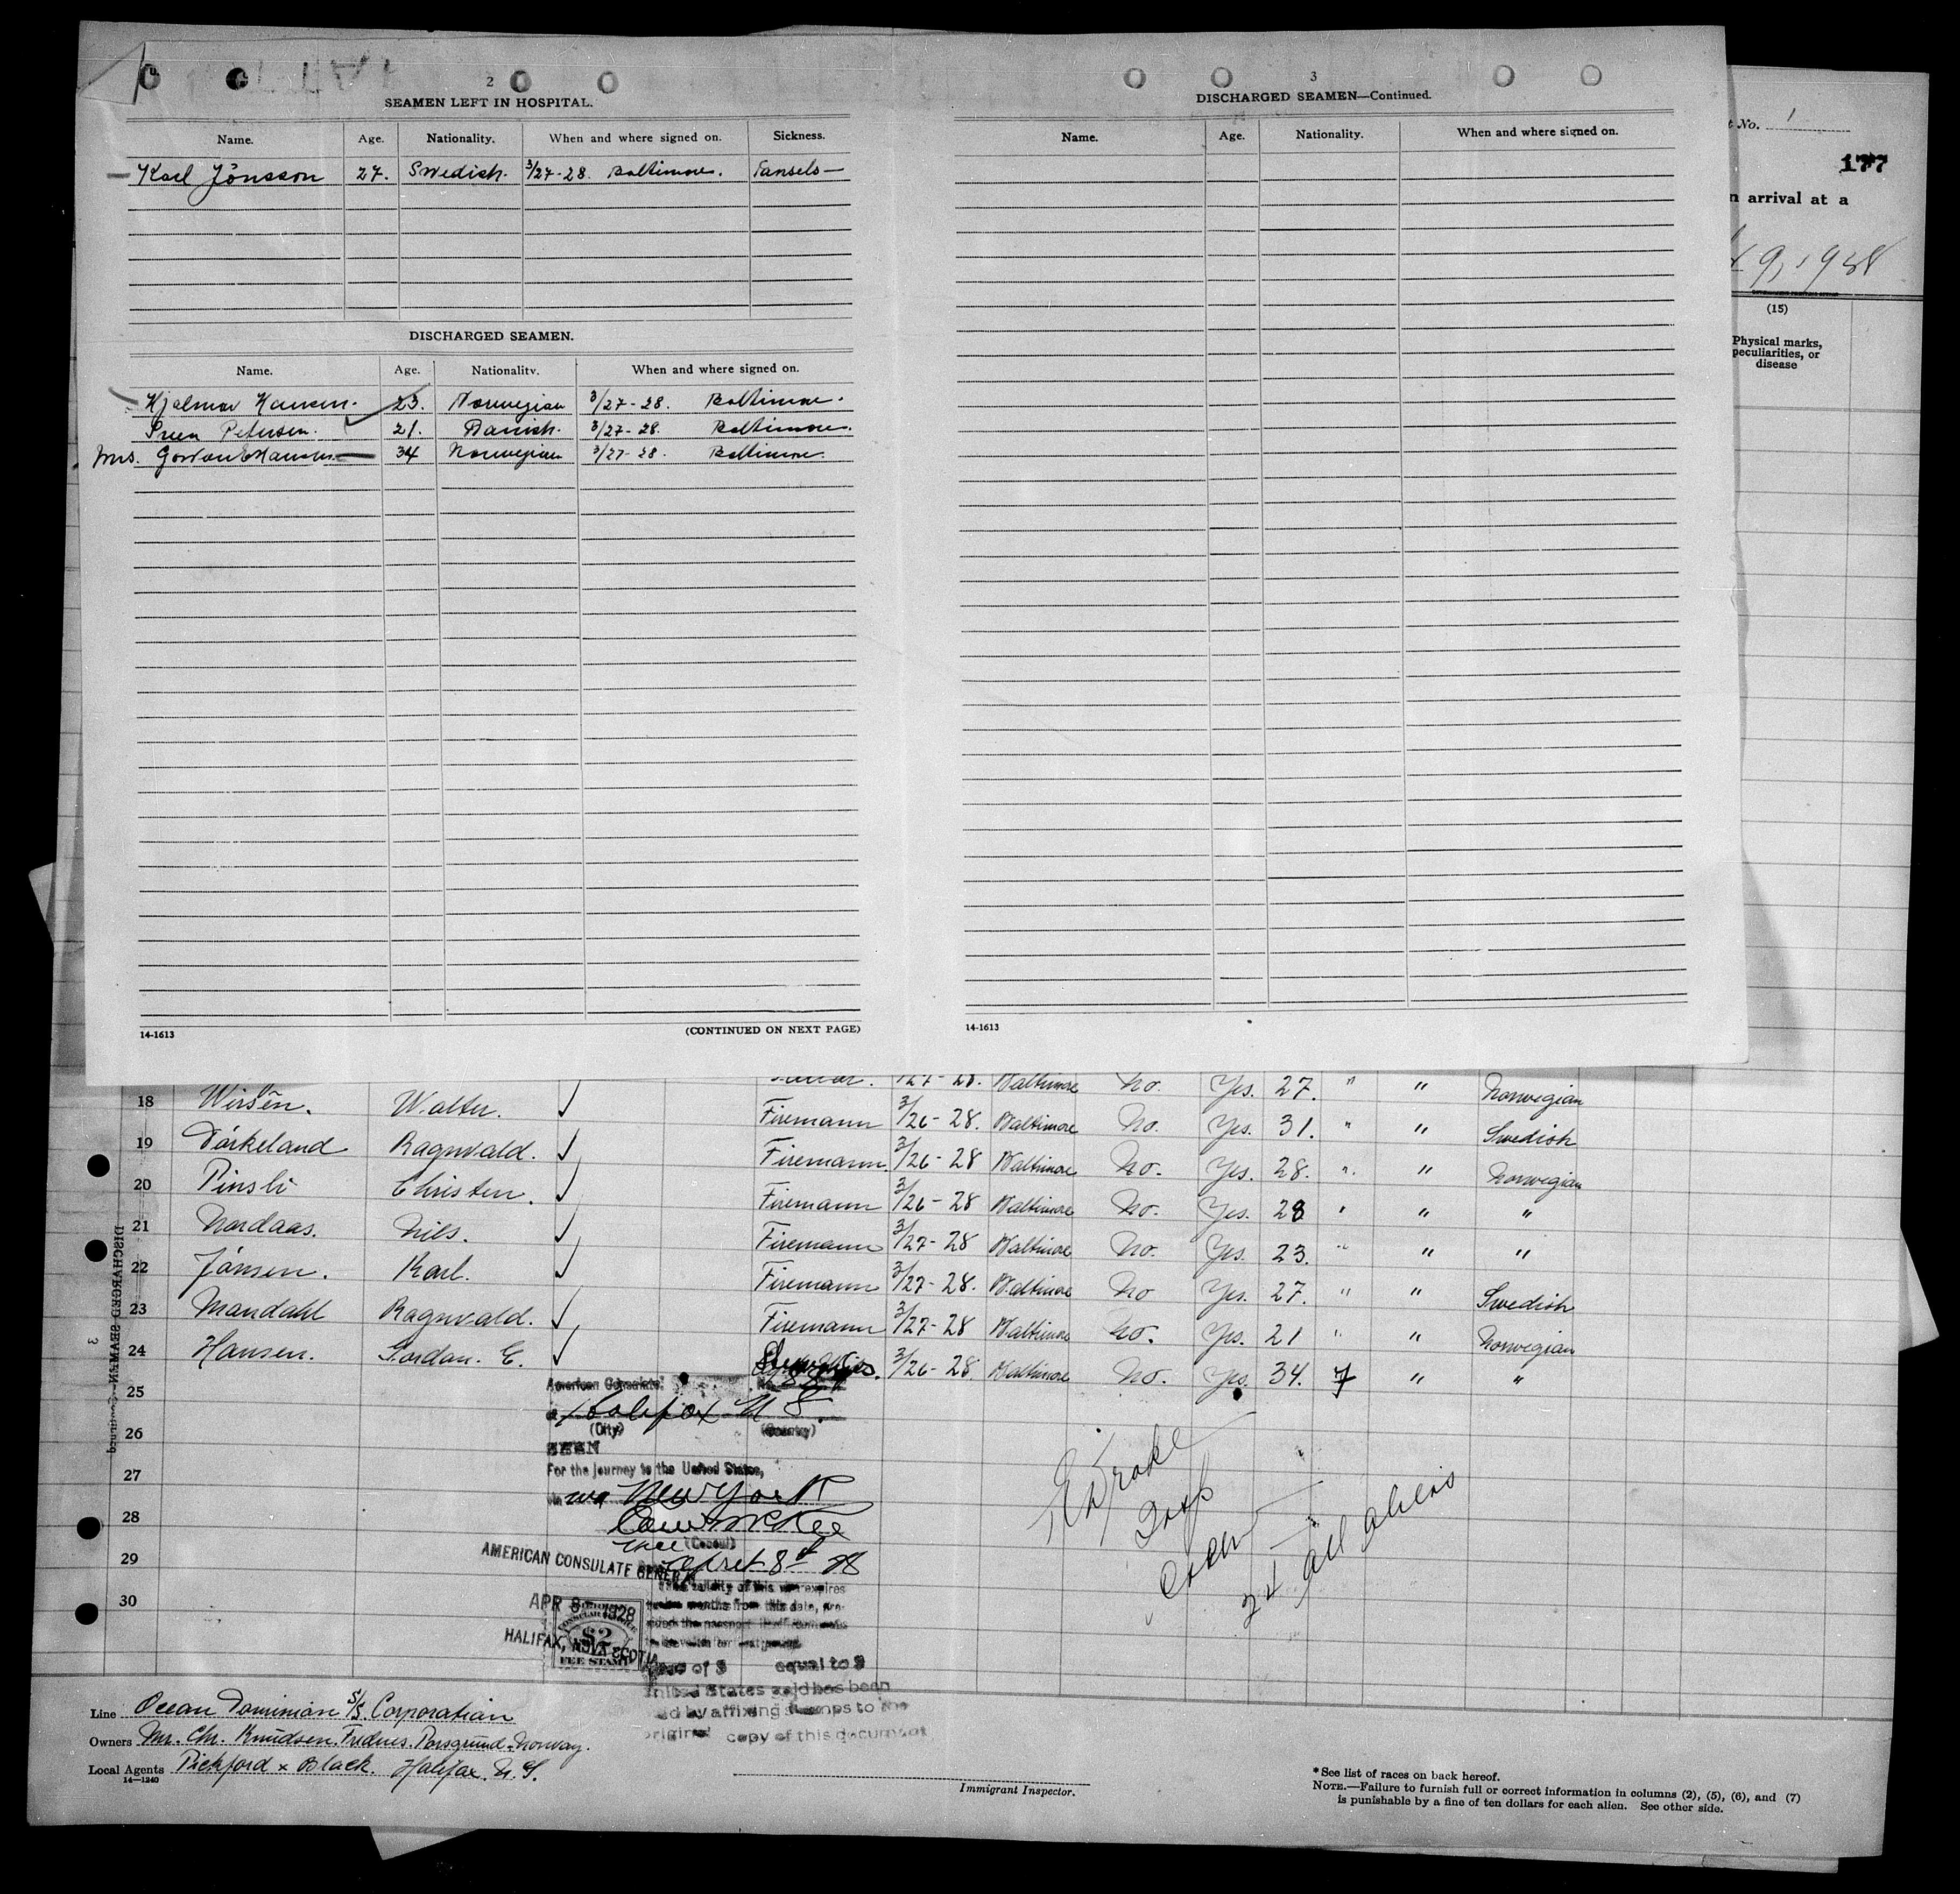 2
SEAMEN LEFT IN HOSPITAL.
Name. Age. Nationality. When and where signed on. Sickness.
Karl Jönsson 27. Swedish. 3/27-28. Baltimore. Tansels
DISCHARGED SEAMEN.
Name. Age. Nationality. When and where signed on.
Hjalmar Hansen. 23. Norwegian 3/27-28. Baltimore.
Sven Petersen. 21. Danish. 3/27-28. Baltimore.
Mrs. Gordan E Hansen 34 Norwegian 3/27-28. Baltimore.
14-1613 (CONTINUED ON NEXT PAGE)
3
DISCHARGED SEAMEN—Continued.
Name. Age. Nationality. When and where signed on.
14-1613
No. 1
177
arrival at a
9, 1928
(15)
Physical marks, peculiarities, or disease
27-28. Baltimore No. Yes. 27. " " Norwegian
18 Wirsén. Walter. ✓ Firemann 3/26-28 Baltimore No. Yes. 31. " " Swedish
19 Torkeland Ragnvald. ✓ Firemann. 3/26-28 Baltimore No. Yes. 28. " " Norwegian
20 Pinsli Christen. ✓ Firemann 3/26-28 Baltimore No. Yes. 28 " " "
21 Nordaas. Nils. ✓ Firemann 3/27-28 Baltimore No. Yes. 23. " " "
22 Jönsen. Karl. ✓ Firemann 3/27-28. Baltimore No Yes. 27. " " Swedish
23 Mandahl Ragnvald. ✓ Firemann 3/27-28 Baltimore No. Yes. 21 " " Norwegian
24 Hansen. Gordan. E. ✓ 3/26-28. Baltimore No. Yes. 34. " "
25
26
27
28
29
30
DISCHARGED SEAMEN—Continued
3
American Consulate
at Halifax N.S.
(City) (Country)
SEEN
For the journey to the United States,
via New York
Vice (Consul)
April 8th 28
AMERICAN CONSULATE GENERAL
APR 8 1928
HALIFAX, NOVA SCOTIA
$2
FEE STAMP
validity of this visa expires
twelve months from this date, pro-
vided the passport
of $ equal to $
United States has been
by affixing stamps to the
original copy of this document
E Drake
Insp
24 All Aliens
Line Ocean Dominion S/S. Corporation
Owners Mr. Chr. Knudsen. Frednes. Porsgrund. Norway.
Local Agents Pickford x Black. Halifax. N.S.
14—1240
Immigrant Inspector.
*See list of races on back hereof.
NOTE.—Failure to furnish full or correct information in columns (2), (5), (6), and (7)
is punishable by a fine of ten dollars for each alien. See other side.